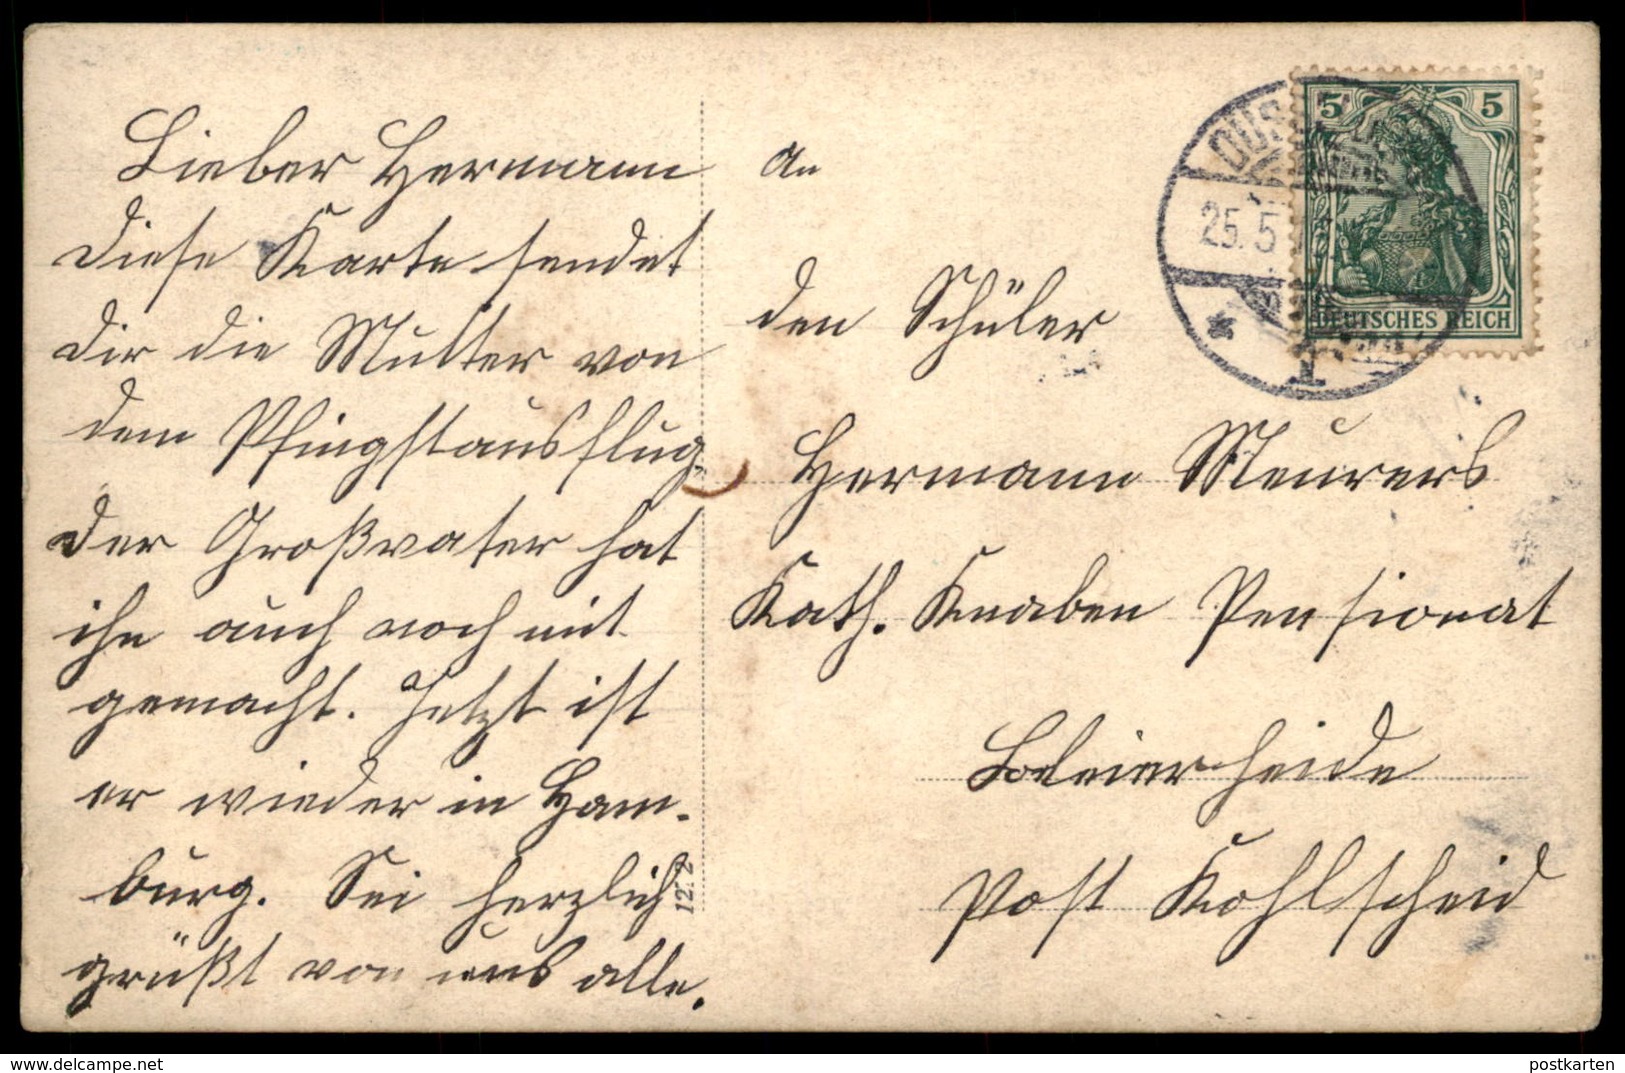 Lieber Hermann
Diese Karte sendet
Dir die Mutter von
dem Pfingstausflug.
Der Großvater hat
ihn auch noch mit
gemacht. Jetzt ist
er wieder in Ham-
burg. Sei herzlich
grüßt von uns alle.
12. 2
An
den Schüler
Hermann Meurers
Kath. Knaben Pensionat
Bleierheide
Post Kohlscheid
25.5
* 1
5 5
DEUTSCHES REICH
www.delcampe.net
postkarten